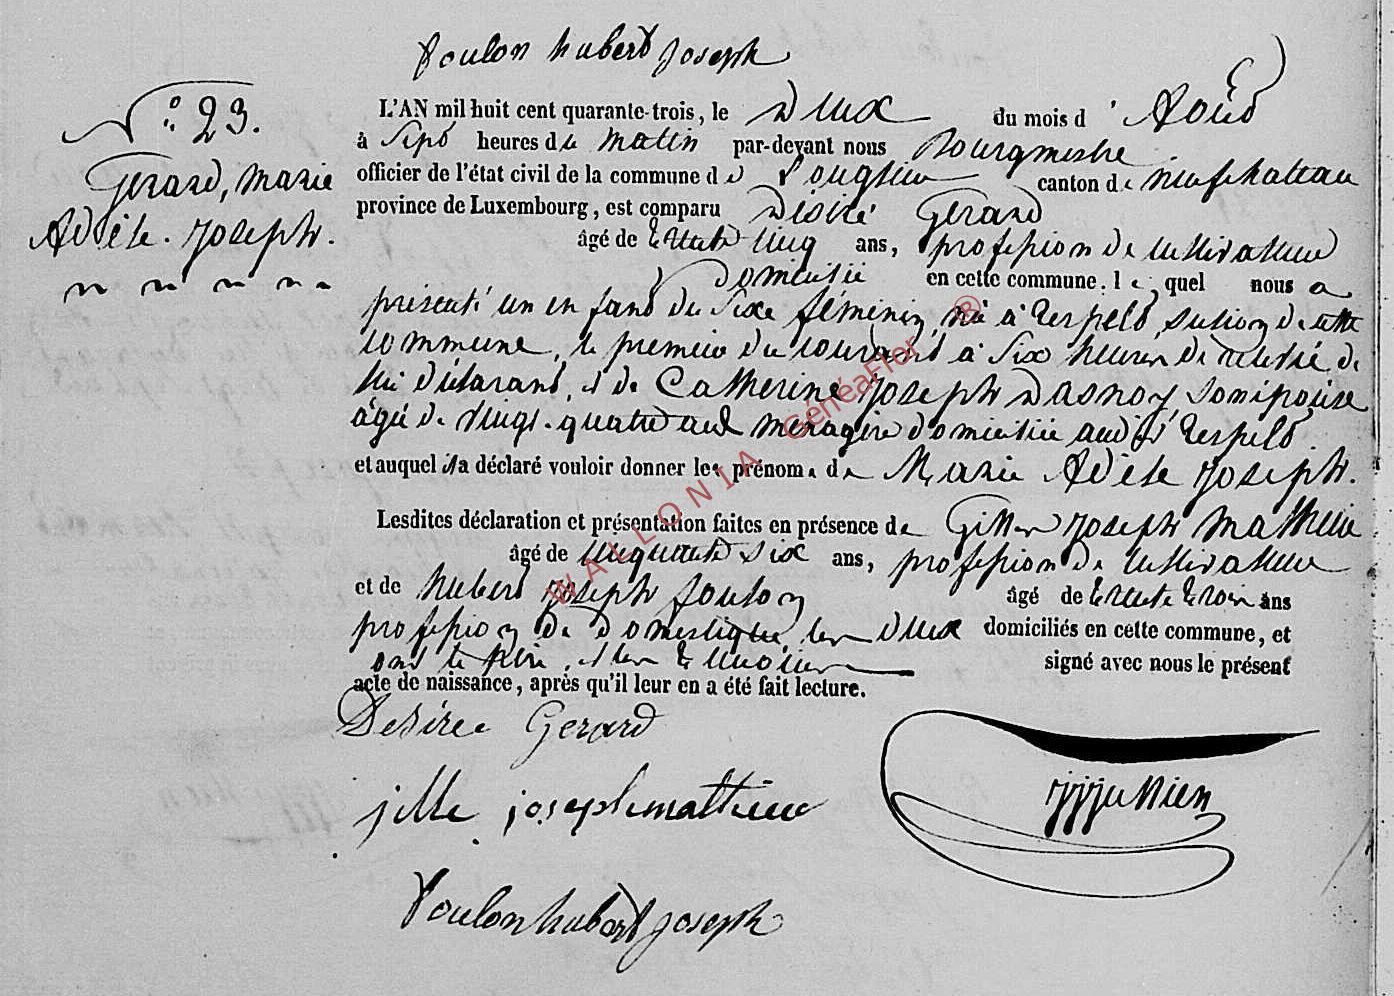 foulon hubert joseph
L'AN mil huit cent quarante-trois, le deux du mois d'Août
à Sept heures du Matin par-devant nous Bourgmestre
officier de l'état civil de la commune de Longlier canton de Neufchateau
province de Luxembourg, est comparu Désiré Gerard
âgé de trente cinq ans, profession de cultivateur
domicilié en cette commune. lequel nous a
présenté un enfant du Sexe féminin, né à Respelt, section de cette
commune, le premier du courant à Six heures de relevée de
lui déclarant, et de Catherine Joseph Dasnoy, son épouse
âgée de vingt-quatre ans ménagère domiciliée audit Respelt
et auquel il a déclaré vouloir donner les prénoms de Marie Adèle Joseph.
Lesdites déclaration et présentation faites en présence de Joseph Mathieu
âgé de cinquante six ans, profession de cultivateur
et de Hubert Joseph foulon âgé de trente trois ans
profession de domestique, les deux domiciliés en cette commune, et
ont le père, et les témoins signé avec nous le présent
acte de naissance, après qu'il leur en a été fait lecture.
N° 23.
Gerard, Marie
Adèle. Joseph.
Desiree Gerard
jille joseph mathieu
foulon hubert joseph
WALLONIA GénéaFlor ®